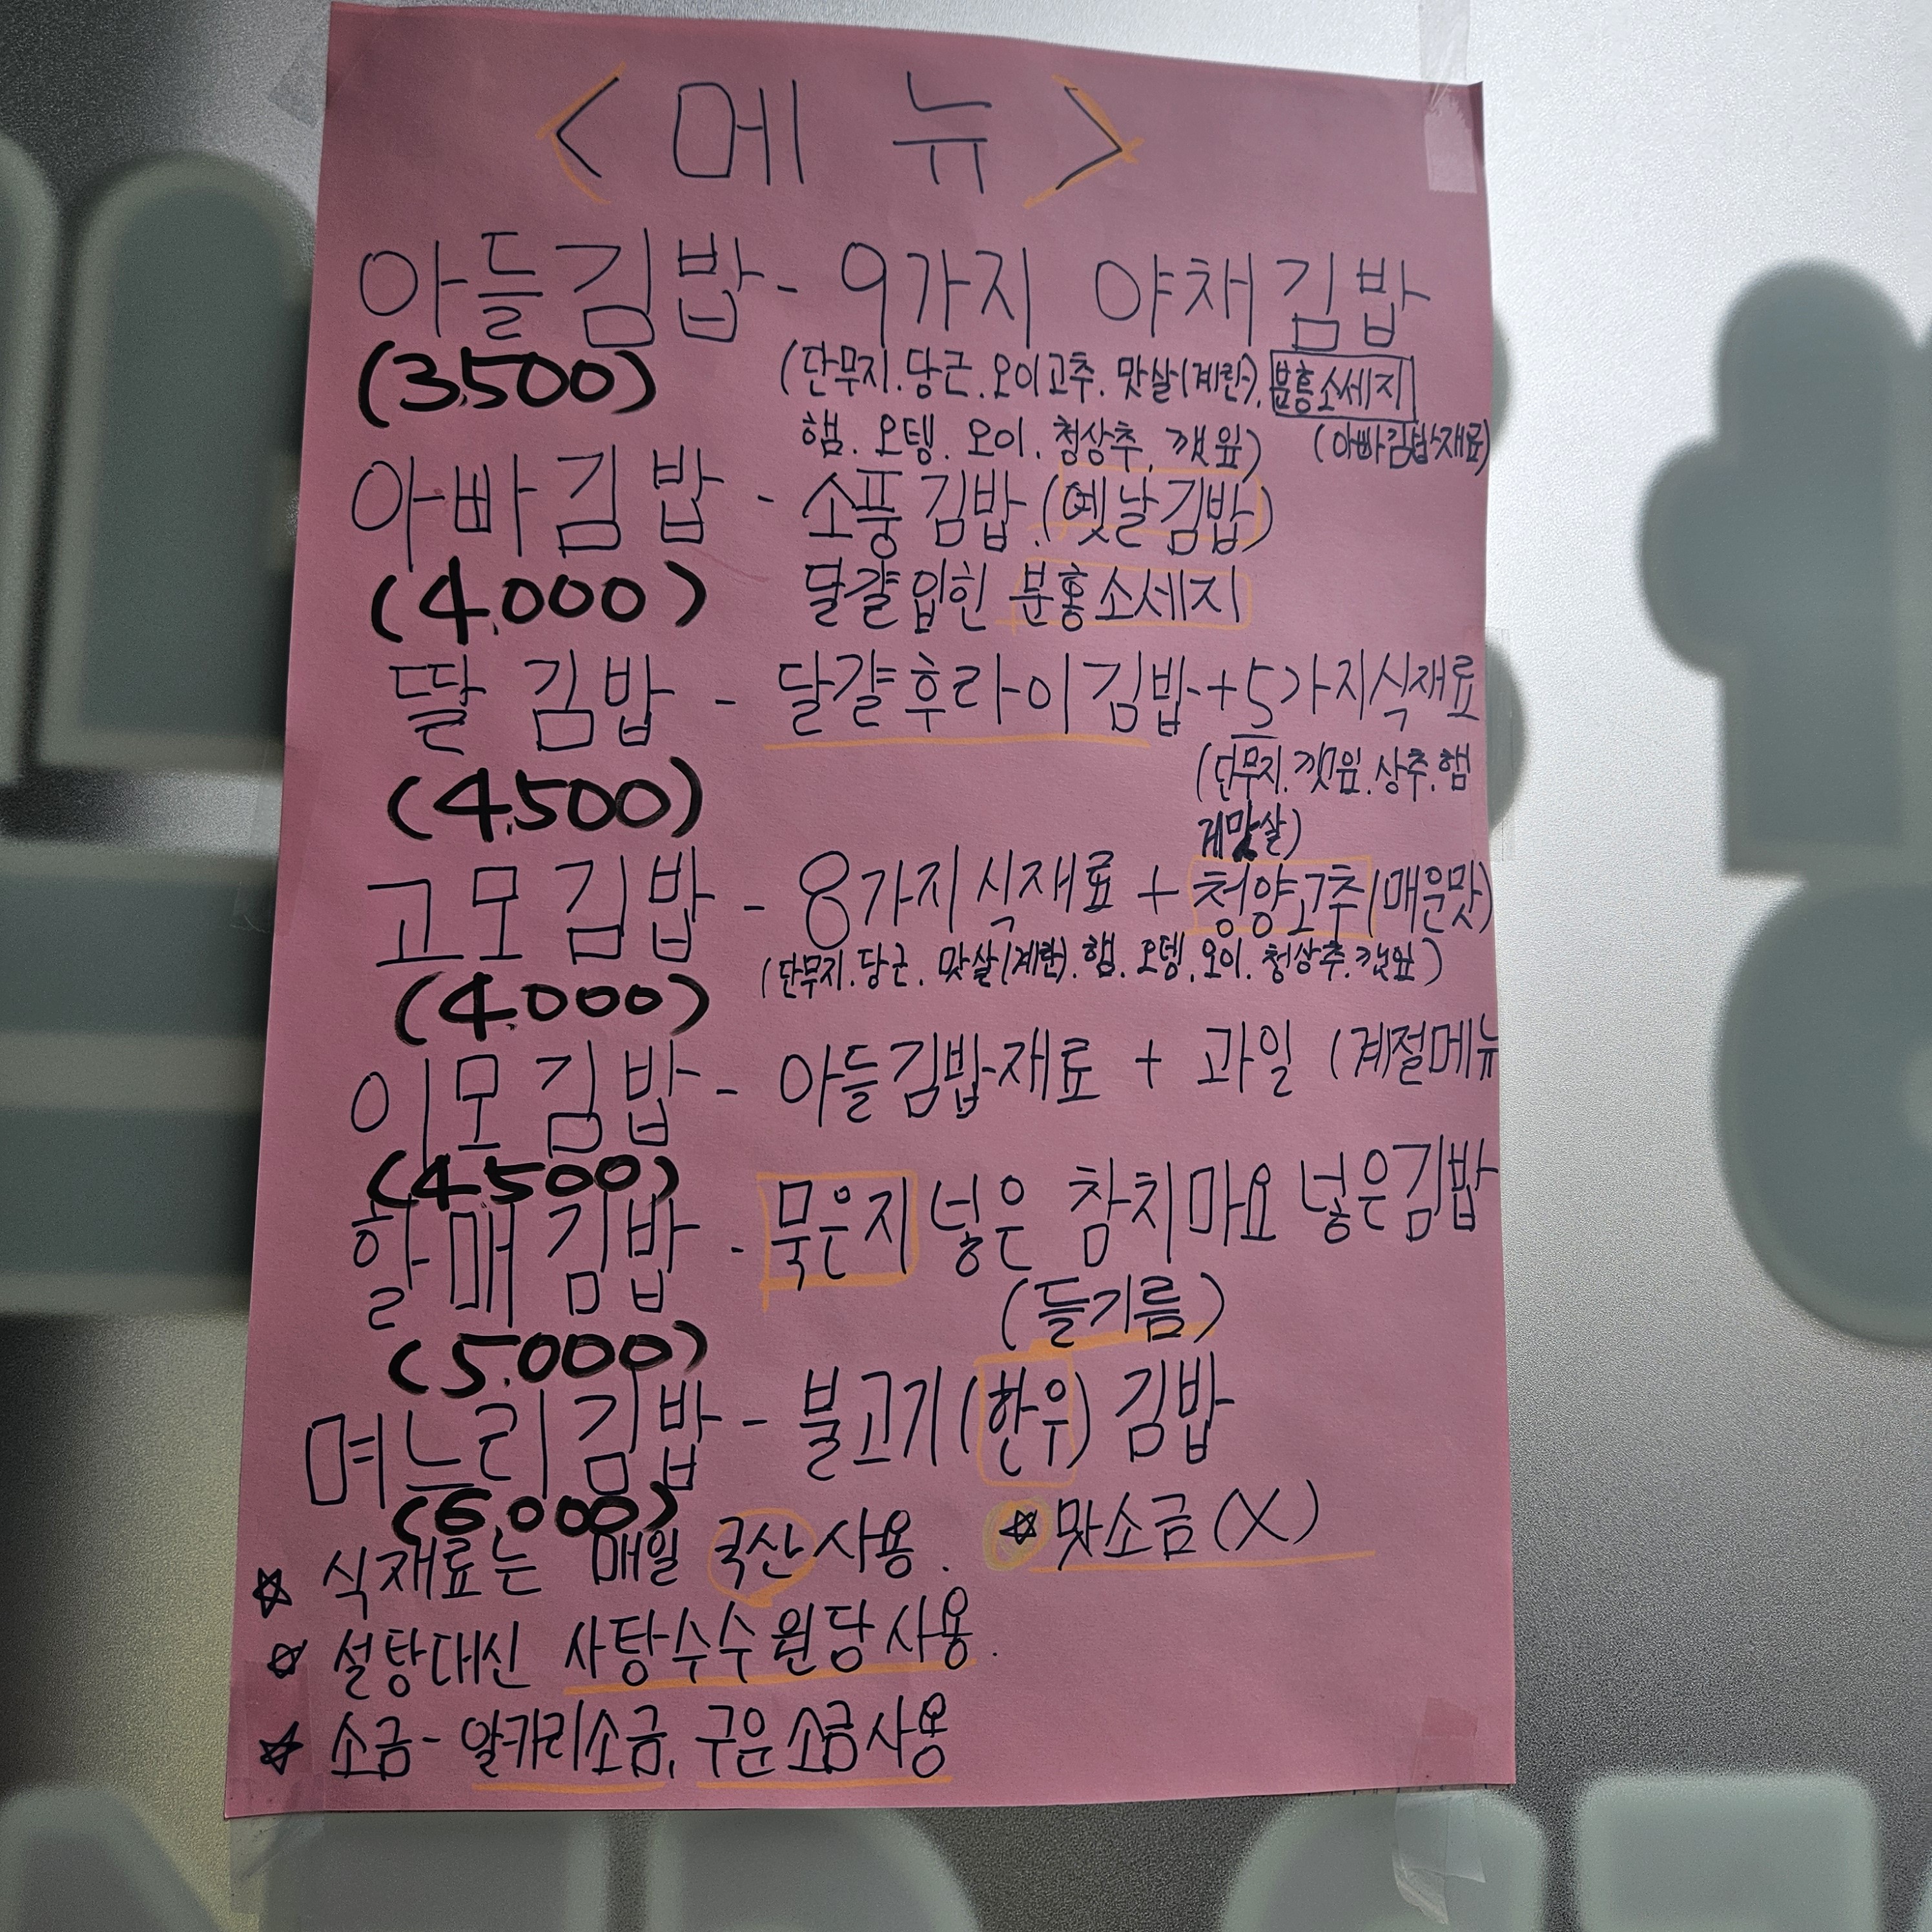 < 메 뉴 >
아들김밥 - 9가지 야채김밥
(3.500) (단무지.당근.오이고추.맛살(계란).분홍소세지
햄.오뎅.오이.청상추.깻잎) (아빠김밥재료)
아빠김밥 - 소풍김밥.(옛날김밥)
(4.000) 달걀입힌 분홍소세지
딸김밥 - 달걀후라이김밥+5가지식재료
(단무지.깻잎.상추.햄
(4.500) 게맛살)
고모김밥 - 8가지식재료 + 청양고추(매운맛)
(단무지.당근.맛살(계란).햄.오뎅.오이.청상추.깻잎)
(4.000)
이모김밥 - 아들김밥재료 + 과일 (계절메뉴
(4.500)
할매김밥 - 묵은지 넣은 참치마요 넣은김밥
(들기름)
(5.000)
며느리김밥 - 불고기(한우) 김밥
(6.000)
☆ 식재료는 매일 국산사용. ☆맛소금(X)
☆ 설탕대신 사탕수수원당사용.
☆ 소금- 알카리소금, 구운소금사용